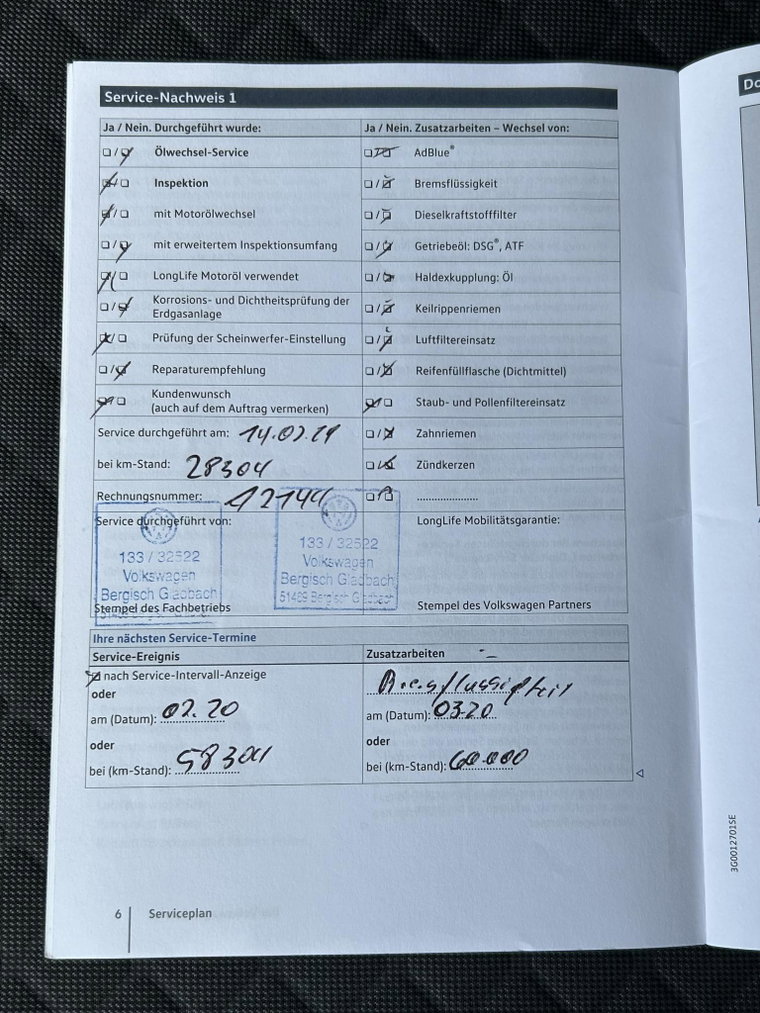 Service-Nachweis 1
Do
Ja / Nein. Durchgeführt wurde:
Ja / Nein. Zusatzarbeiten – Wechsel von:
Ölwechsel-Service
AdBlue®
Inspektion
Bremsflüssigkeit
mit Motorölwechsel
Dieselkraftstofffilter
mit erweitertem Inspektionsumfang
Getriebeöl: DSG®, ATF
LongLife Motoröl verwendet
Haldexkupplung: Öl
Korrosions- und Dichtheitsprüfung der
Erdgasanlage
Keilrippenriemen
Prüfung der Scheinwerfer-Einstellung
Luftfiltereinsatz
Reparaturempfehlung
Reifenfüllflasche (Dichtmittel)
Kundenwunsch
(auch auf dem Auftrag vermerken)
Staub- und Pollenfiltereinsatz
Service durchgeführt am:
Zahnriemen
bei km-Stand: 28304
Zündkerzen
Rechnungsnummer: 42144
Service durchgeführt von:
LongLife Mobilitätsgarantie:
133 / 32522
Volkswagen
Bergisch Gladbach
133 / 32522
Volkswagen
Bergisch Gladbach
Stempel des Fachbetriebs
Stempel des Volkswagen Partners
Ihre nächsten Service-Termine
Service-Ereignis
Zusatzarbeiten
nach Service-Intervall-Anzeige
oder
Bremsflüssigkeit
am (Datum): 02.20
am (Datum): 03.20
oder
oder
bei (km-Stand): 58304
bei (km-Stand): 60.000
3G0012701SE
6
Serviceplan